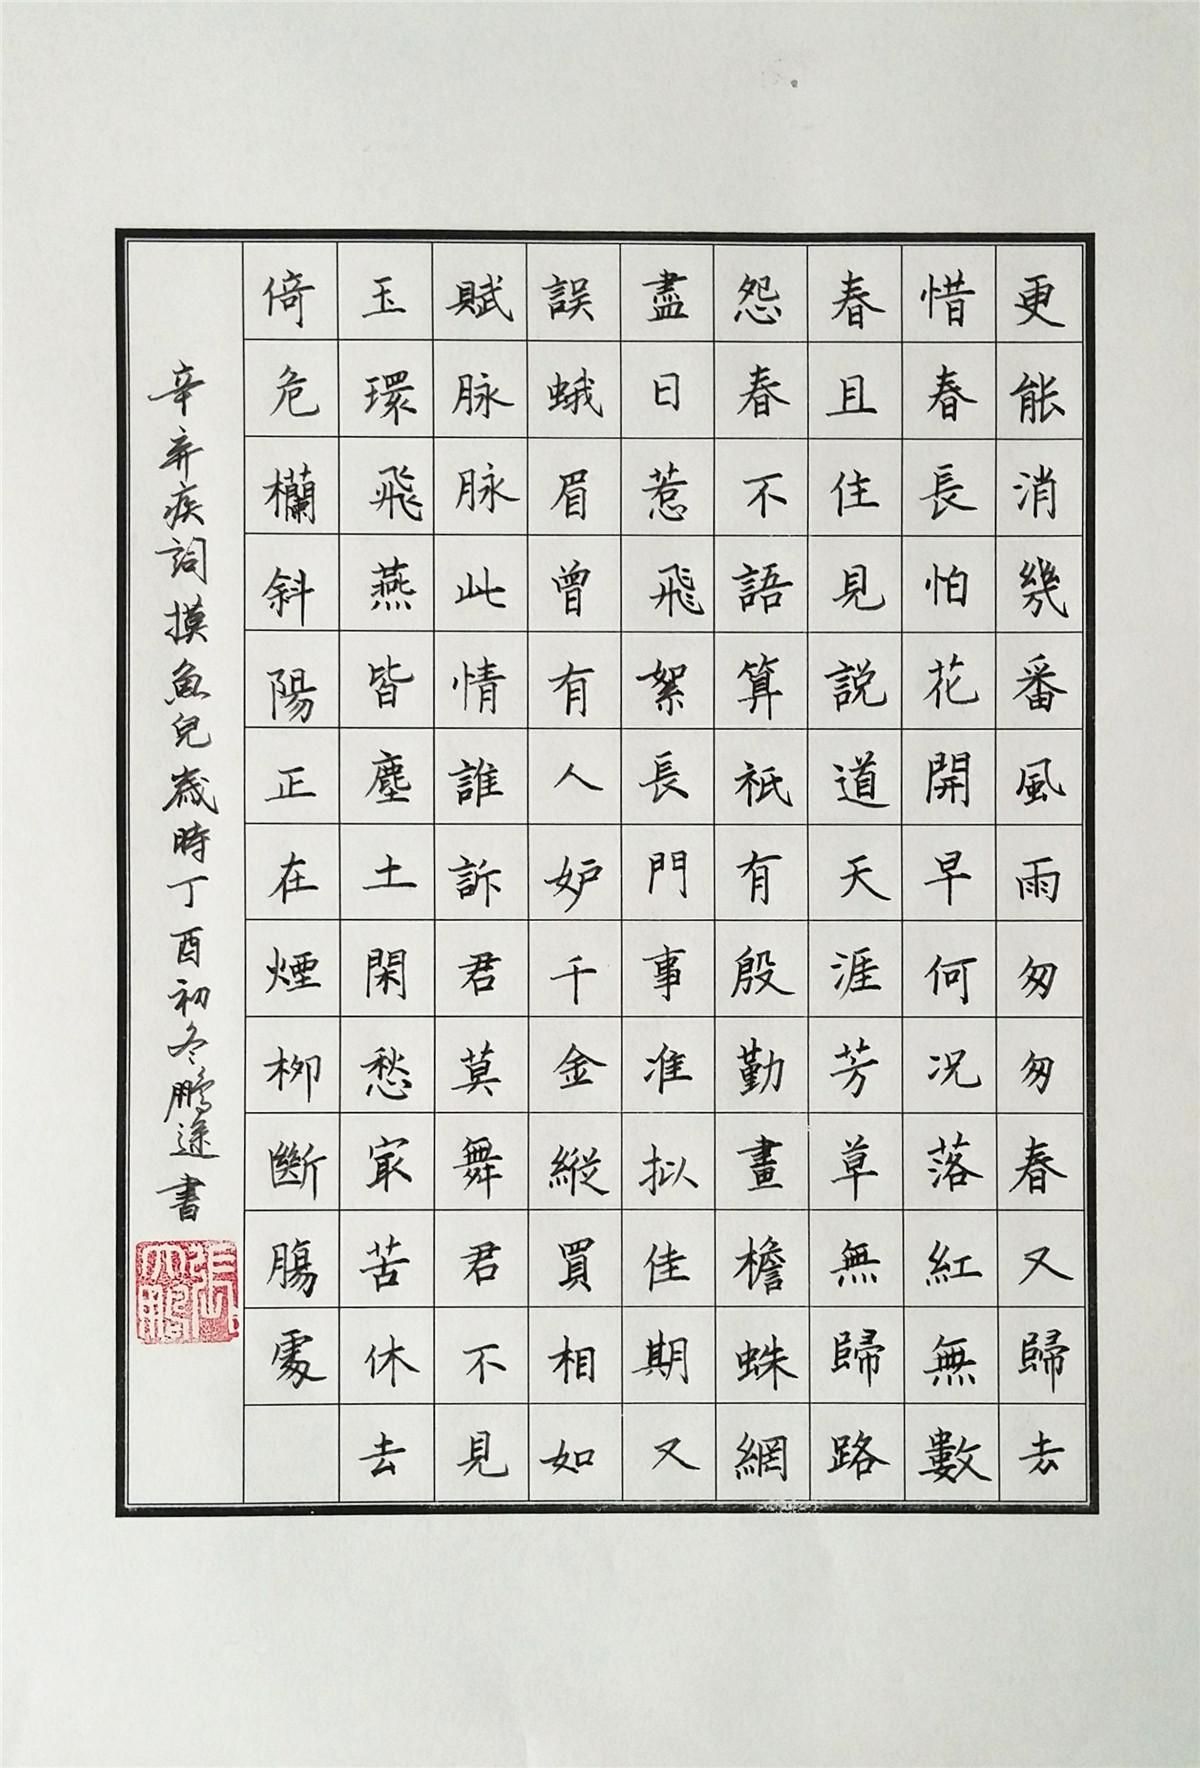 更能消幾番風雨匆匆春又歸去
惜春長怕花開早何況落紅無數
春且住見説道天涯芳草無歸路
怨春不語算祇有殷勤畫檐蛛網
盡日惹飛絮長門事准拟佳期又
誤蛾眉曾有人妒千金縱買相如
賦脉脉此情誰訴君莫舞君不見
玉環飛燕皆塵土閑愁㝡苦休去
倚危欄斜陽正在煙柳斷腸處
辛弃疾詞摸魚兒歲時丁酉初冬鵬途書